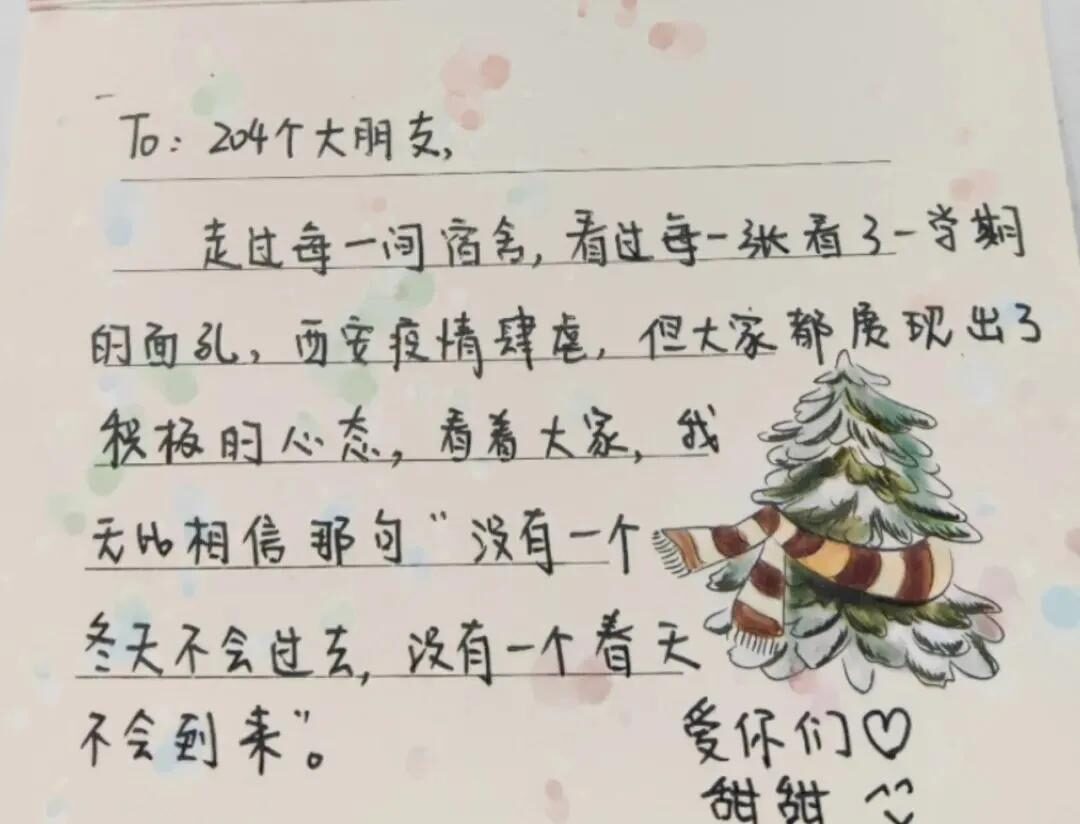 To: 204个大朋友,
走过每一间宿舍, 看过每一张看了一学期
的面孔, 西安疫情肆虐, 但大家都展现出了
积极的心态, 看着大家, 我
无比相信那句“没有一个
冬天不会过去, 没有一个春天
不会到来”。
爱你们♡
甜甜 ^^